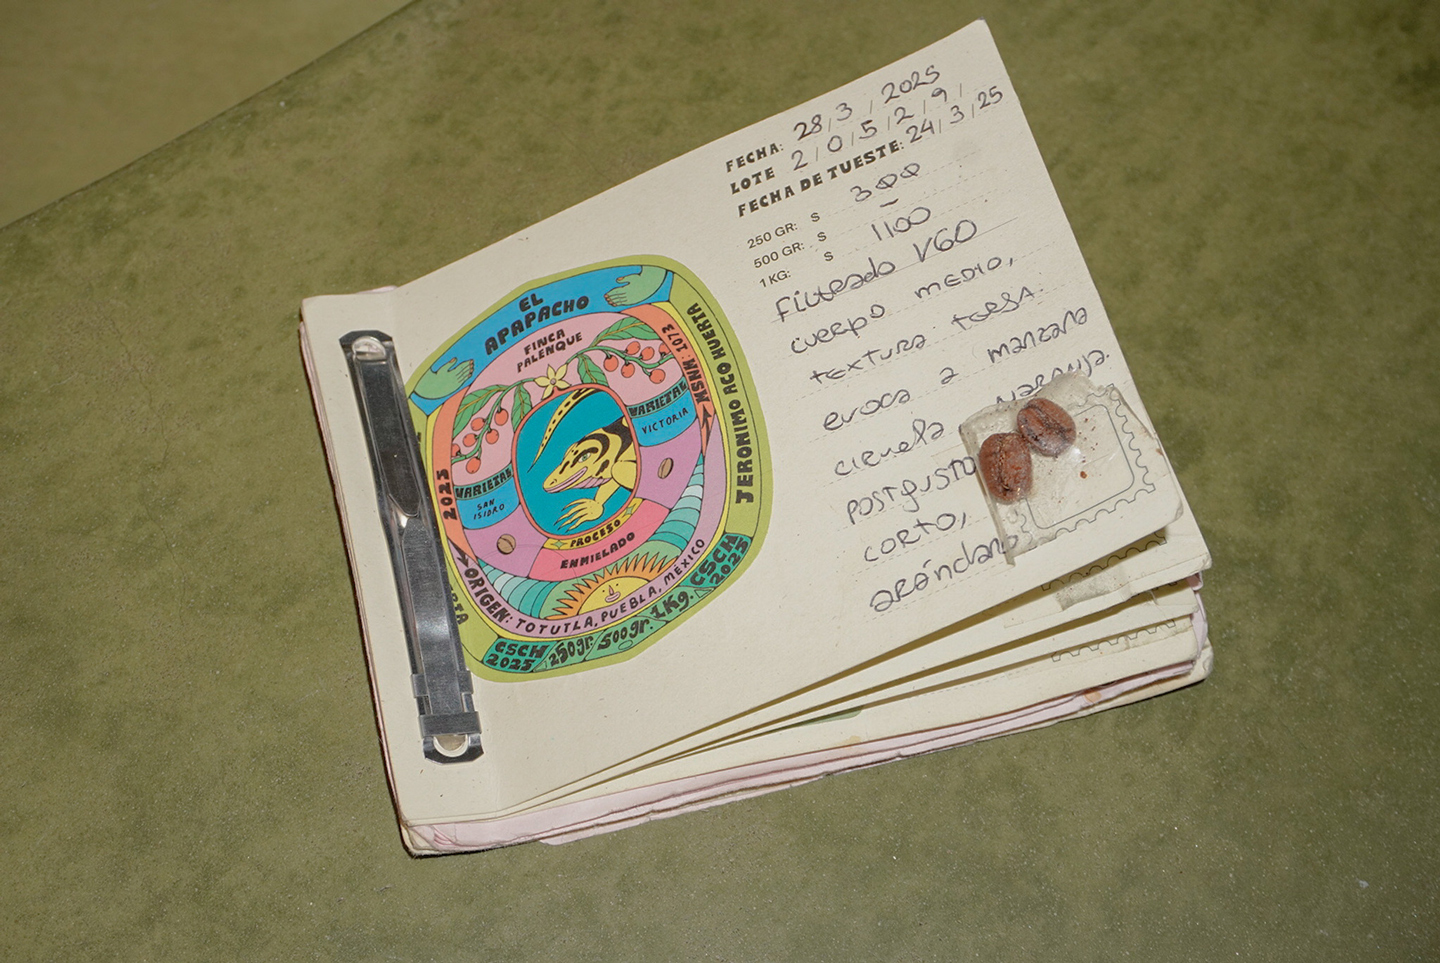 EL
APAPACHO
FINCA
PALENQUE
MSNM: 1073
JERONIMO ACO HUERTA
VARIETAL
VICTORIA
2023
VARIETAL
SAN
ISIDRO
PROCESO
ENMIELADO
ORIGEN: TOTUTLA, PUEBLA, MÉXICO
CSCH
2023
250gr.
500gr.
1Kg.
CSCH
2023
FECHA: 28/3/2025
LOTE 2/0/5/2/9/
FECHA DE TUESTE: 24/3/25
250 GR: $ 300
500 GR: $
1 KG: $ 1100
Filtrado V60
cuerpo MEDIO,
textura tersa.
evoca a manzana
ciruela naranja.
postgusto
corto,
arándano